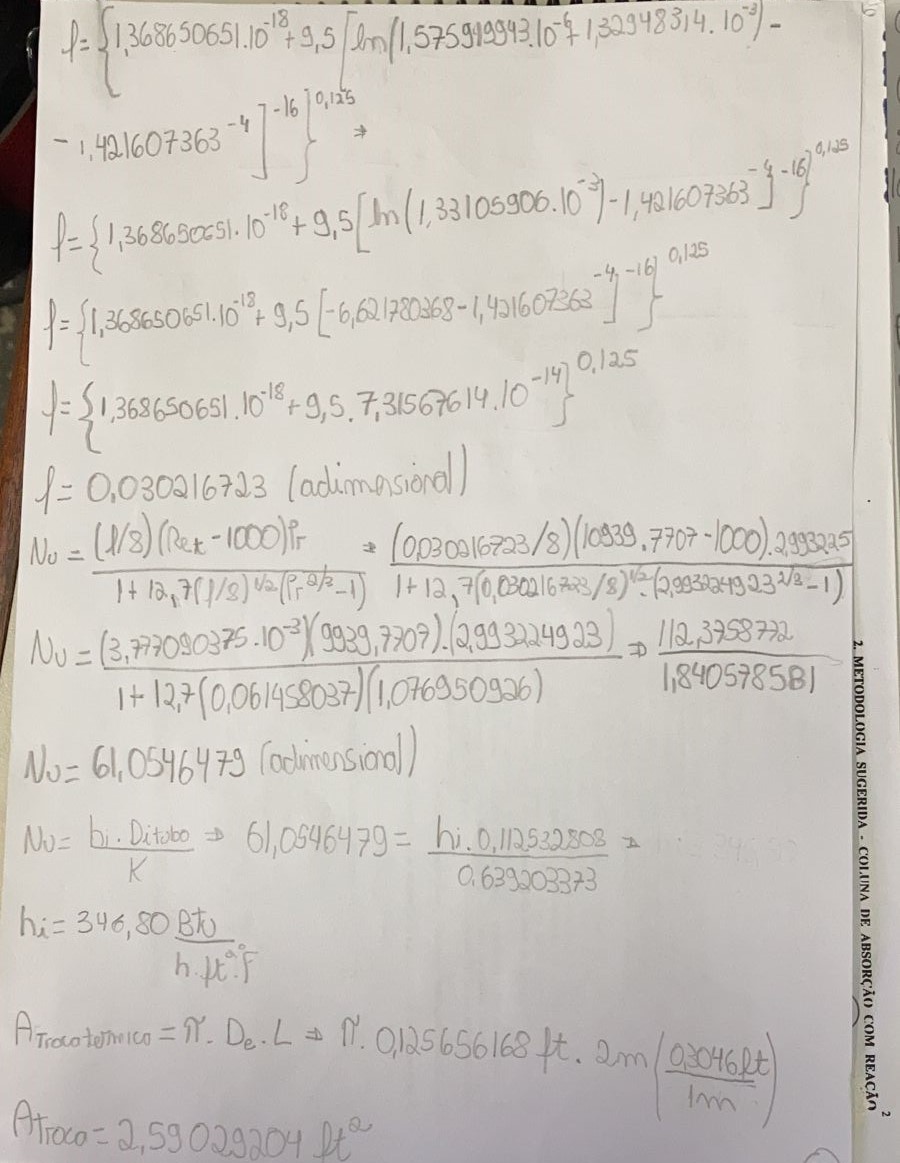 f={1,368650651.10^-18+9,5[ln(1,575949943.10^-6+1,32948314.10^-3)-
-1,421607363^-4]^-16}^0,125 ⇒
f={1,368650651.10^-18+9,5[ln(1,33105906.10^-3)-1,421607363^-4]^-16}^0,125
f={1,368650651.10^-18+9,5[-6,621780368-1,421607363^-4]^-16}^0,125
f={1,368650651.10^-18+9,5.7,31567614.10^-14}^0,125
f=0,030216723 (adimensional)
Nu=(f/8)(Ret-1000)Pr/1+12,7(f/8)^1/2(Pr^2/3-1) ⇒ (0,030216723/8)(10939,7707-1000).2,993225/1+12,7(0,030216723/8)^1/2.(2,993224923^2/3-1)
Nu=(3,777090375.10^-3)(9939,7707).(2,993224923)/1+12,7(0,061458037)(1,076950926) ⇒ 112,3758772/1,840578581
Nu=61,0546479 (adimensional)
Nu=hi.Ditubo/K ⇒ 61,0546479=hi.0,112532808/0,639203373 ⇒
hi=346,80 Btu/h.ft².°F
Atrocatermica=π.De.L ⇒ π.0,125656168ft.2m(0,3046ft/1m)
Atroca=2,59029204 ft²
2. METODOLOGIA SUGERIDA - COLUNA DE ABSORÇÃO COM REAÇÃO
2